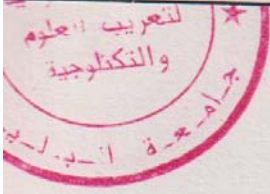 لتعريب العلوم
والتكنلوجية
جامعة